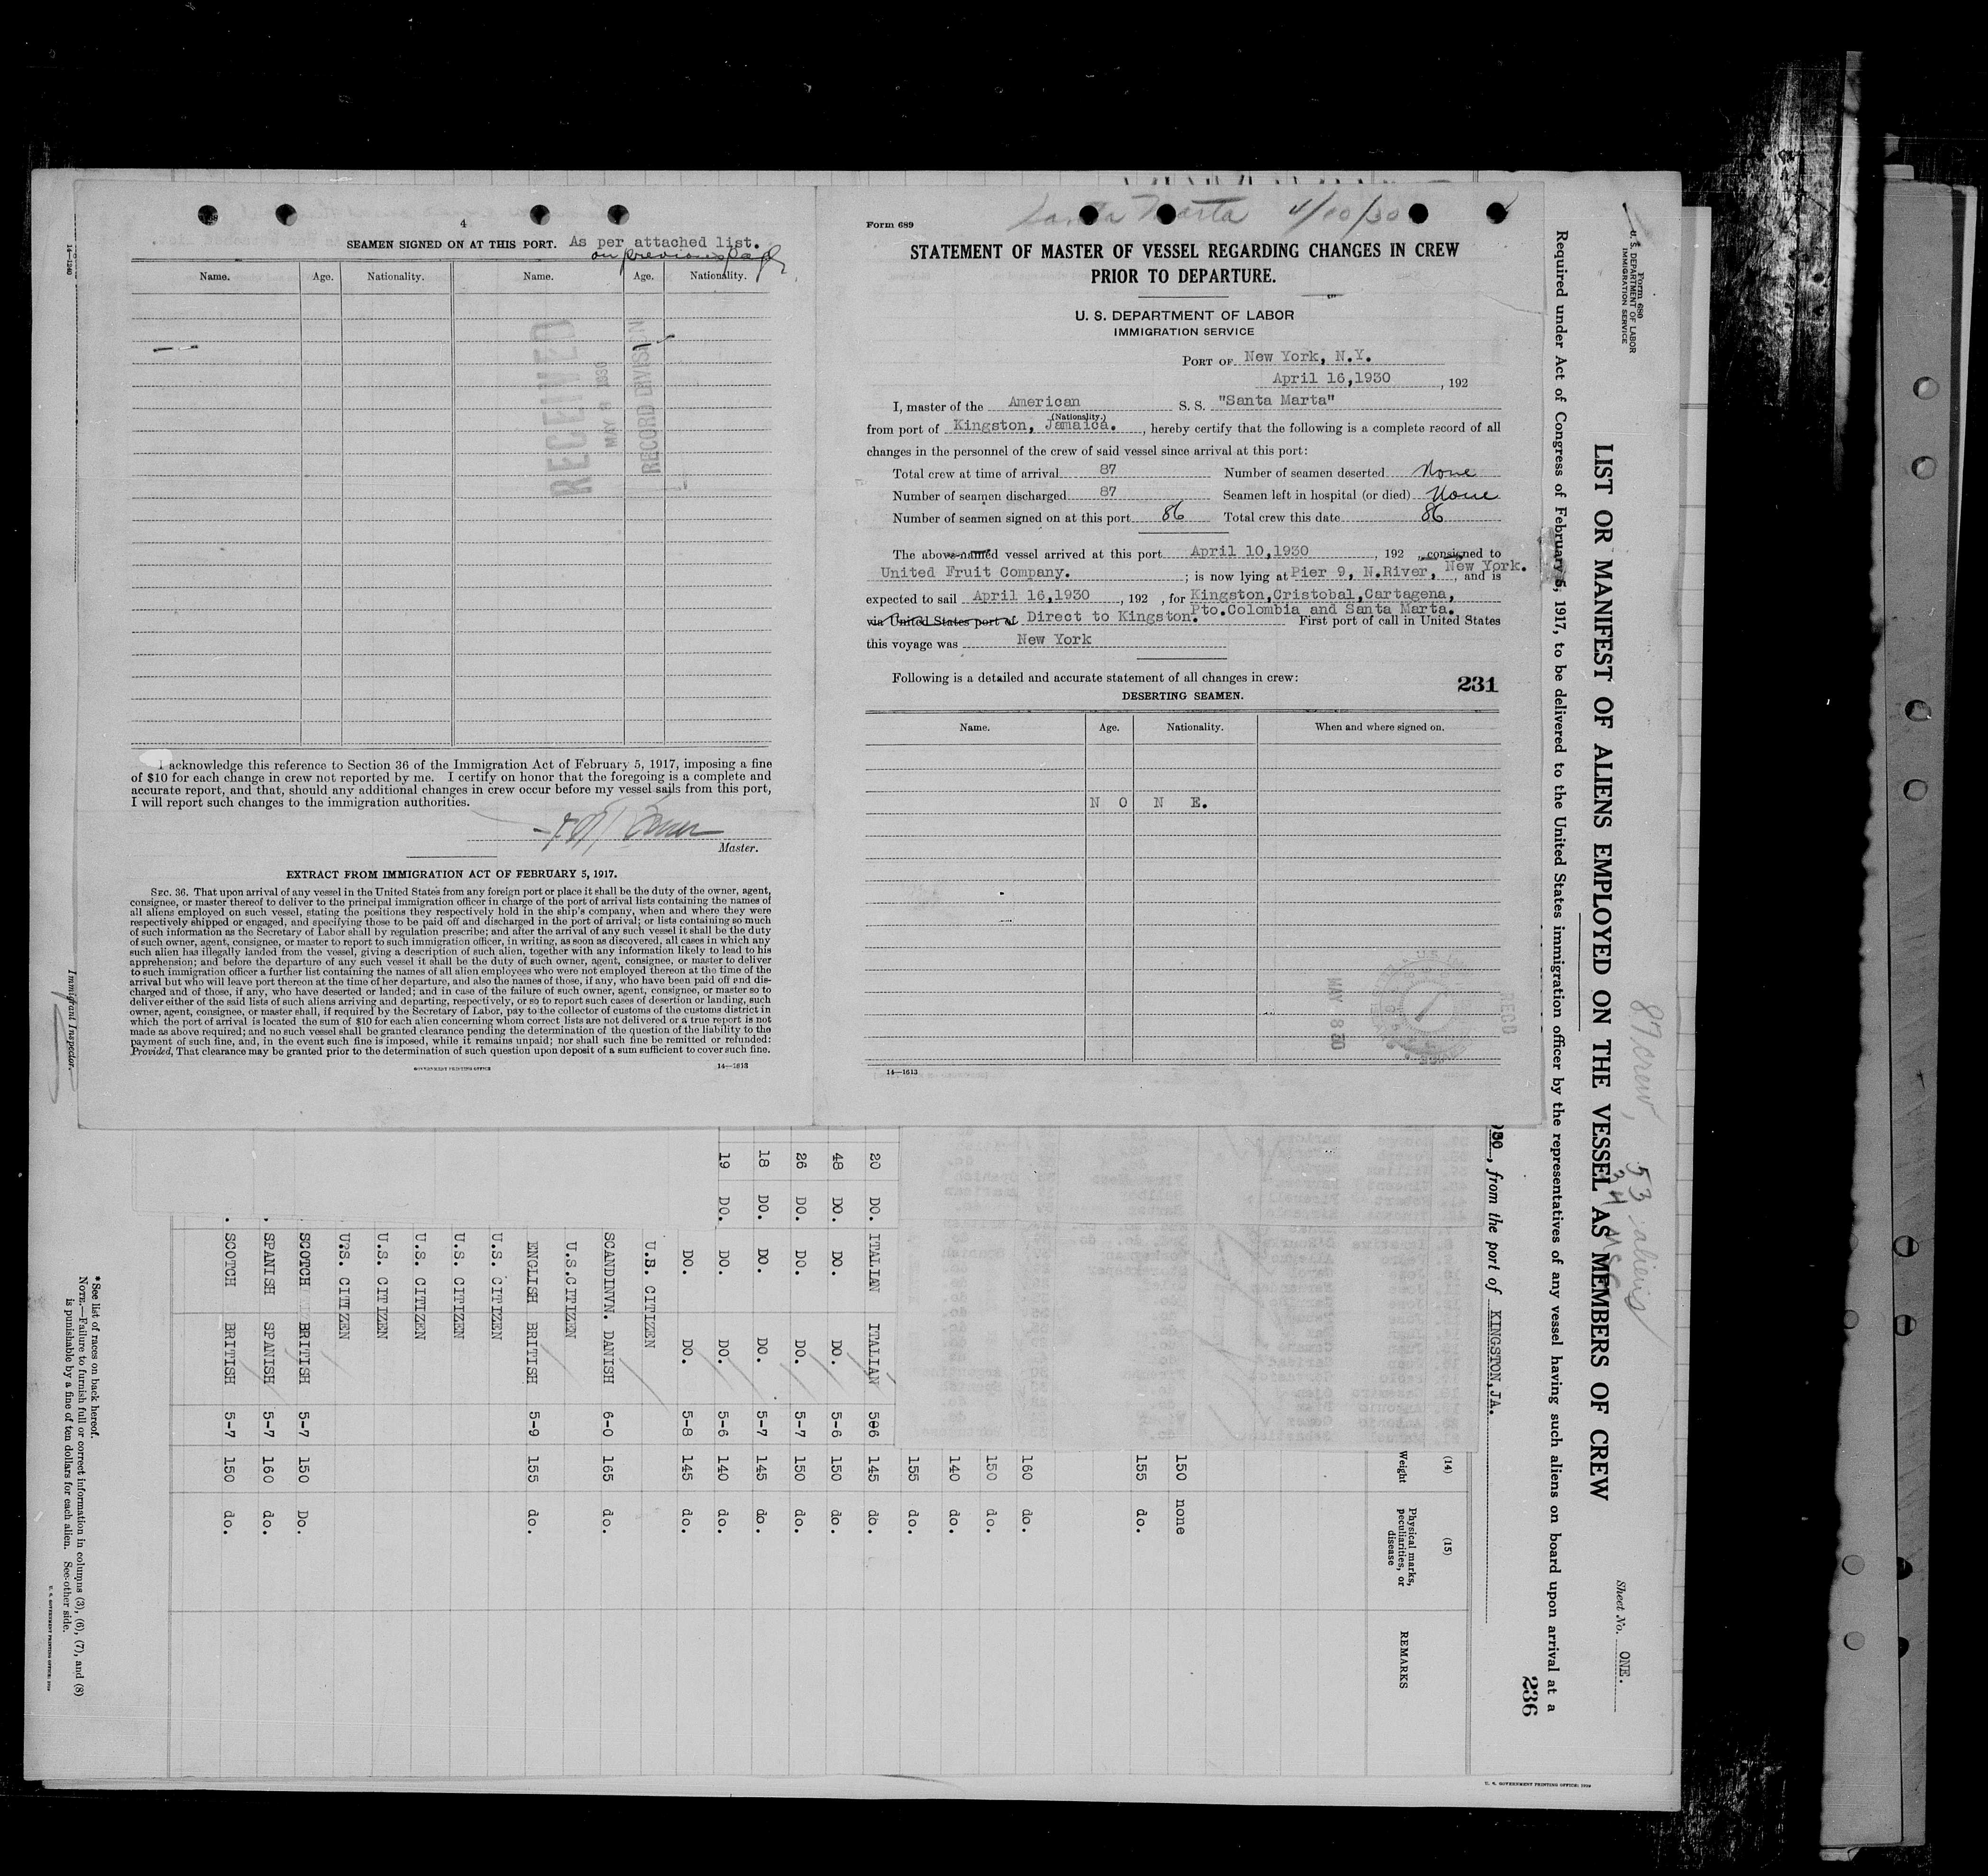 4
SEAMEN SIGNED ON AT THIS PORT. As per attached list.
on previous page
Name. Age. Nationality. Name. Age. Nationality.
RECEIVED
MAY 9 1930
RECORD DIVISION
I acknowledge this reference to Section 36 of the Immigration Act of February 5, 1917, imposing a fine
of $10 for each change in crew not reported by me. I certify on honor that the foregoing is a complete and
accurate report, and that, should any additional changes in crew occur before my vessel sails from this port,
I will report such changes to the immigration authorities.
Master.
EXTRACT FROM IMMIGRATION ACT OF FEBRUARY 5, 1917.
SEC. 36. That upon arrival of any vessel in the United States from any foreign port or place it shall be the duty of the owner, agent,
consignee, or master thereof to deliver to the principal immigration officer in charge of the port of arrival lists containing the names of
all aliens employed on such vessel, stating the positions they respectively hold in the ship's company, when and where they were
respectively shipped or engaged, and specifying those to be paid off and discharged in the port of arrival; or lists containing so much
of such information as the Secretary of Labor shall by regulation prescribe; and after the arrival of any such vessel it shall be the duty
of such owner, agent, consignee, or master to report to such immigration officer, in writing, as soon as discovered, all cases in which any
such alien has illegally landed from the vessel, giving a description of such alien, together with any information likely to lead to his
apprehension; and before the departure of any such vessel it shall be the duty of such owner, agent, consignee, or master to deliver
to such immigration officer a further list containing the names of all alien employees who were not employed thereon at the time of the
arrival but who will leave port thereon at the time of her departure, and also the names of those, if any, who have been paid off and dis-
charged and of those, if any, who have deserted or landed; and in case of the failure of such owner, agent, consignee, or master so to
deliver either of the said lists of such aliens arriving and departing, respectively, or so to report such cases of desertion or landing, such
owner, agent, consignee, or master shall, if required by the Secretary of Labor, pay to the collector of customs of the customs district in
which the port of arrival is located the sum of $10 for each alien concerning whom correct lists are not delivered or a true report is not
made as above required; and no such vessel shall be granted clearance pending the determination of the question of the liability to the
payment of such fine, and, in the event such fine is imposed, while it remains unpaid; nor shall such fine be remitted or refunded:
Provided, That clearance may be granted prior to the determination of such question upon deposit of a sum sufficient to cover such fine.
GOVERNMENT PRINTING OFFICE 14—1613
14—1240
Immigrant Inspector.
Santa Marta 4/10/30
Form 689
STATEMENT OF MASTER OF VESSEL REGARDING CHANGES IN CREW
PRIOR TO DEPARTURE.
U. S. DEPARTMENT OF LABOR
IMMIGRATION SERVICE
PORT OF New York, N.Y.
April 16,1930, 192
I, master of the American S. S. "Santa Marta"
(Nationality.)
from port of Kingston, Jamaica., hereby certify that the following is a complete record of all
changes in the personnel of the crew of said vessel since arrival at this port:
Total crew at time of arrival 87 Number of seamen deserted None
Number of seamen discharged 87 Seamen left in hospital (or died) None
Number of seamen signed on at this port 86 Total crew this date 86
The above-named vessel arrived at this port April 10,1930, 192 , consigned to
United Fruit Company. ; is now lying at Pier 9, N.River, New York., and is
expected to sail April 16,1930, 192 , for Kingston,Cristobal,Cartagena,
Pto.Colombia and Santa Marta.
via United States port of Direct to Kingston. First port of call in United States
this voyage was New York
Following is a detailed and accurate statement of all changes in crew:
231
DESERTING SEAMEN.
Name. Age. Nationality. When and where signed on.
N O N E.
MAY 8 30
RECD
14—1613
Form 680
U. S. DEPARTMENT OF LABOR
IMMIGRATION SERVICE
Sheet No. ONE.
87 crew, 53 aliens
34 USC
LIST OR MANIFEST OF ALIENS EMPLOYED ON THE VESSEL AS MEMBERS OF CREW
Required under Act of Congress of February 5, 1917, to be delivered to the United States immigration officer by the representatives of any vessel having such aliens on board upon arrival at a
236
930, from the port of KINGSTON,JA.
(14) (15)
Weight Physical marks, peculiarities, or disease REMARKS
150 none
155 do.
160 do.
150 do.
140 do.
155 do.
20 DO. ITALIAN ITALIAN 506 145 do.
48 DO. DO. DO. 5-6 150 do.
26 DO. DO. DO. 5-7 150 do.
18 DO. DO. DO. 5-7 145 do.
19 DO. DO. DO. 5-6 140 do.
DO. DO. 5-8 145 do.
U.B. CITIZEN
SCANDINVN. DANISH 6-0 165 do.
U.S.CITIZEN
ENGLISH BRITISH 5-9 155 do.
U.S. CITIZEN
U.S. CITIZEN
U.S. CITIZEN
U.S. CITIZEN
U.S. CITIZEN
SCOTCH BRITISH 5-7 150 Do.
SPANISH SPANISH 5-7 160 do.
SCOTCH BRITISH 5-7 150 do.
*See list of races on back hereof.
NOTE.—Failure to furnish full or correct information in columns (3), (6), (7), and (8)
is punishable by a fine of ten dollars for each alien. See other side.
U. S. GOVERNMENT PRINTING OFFICE: 1929